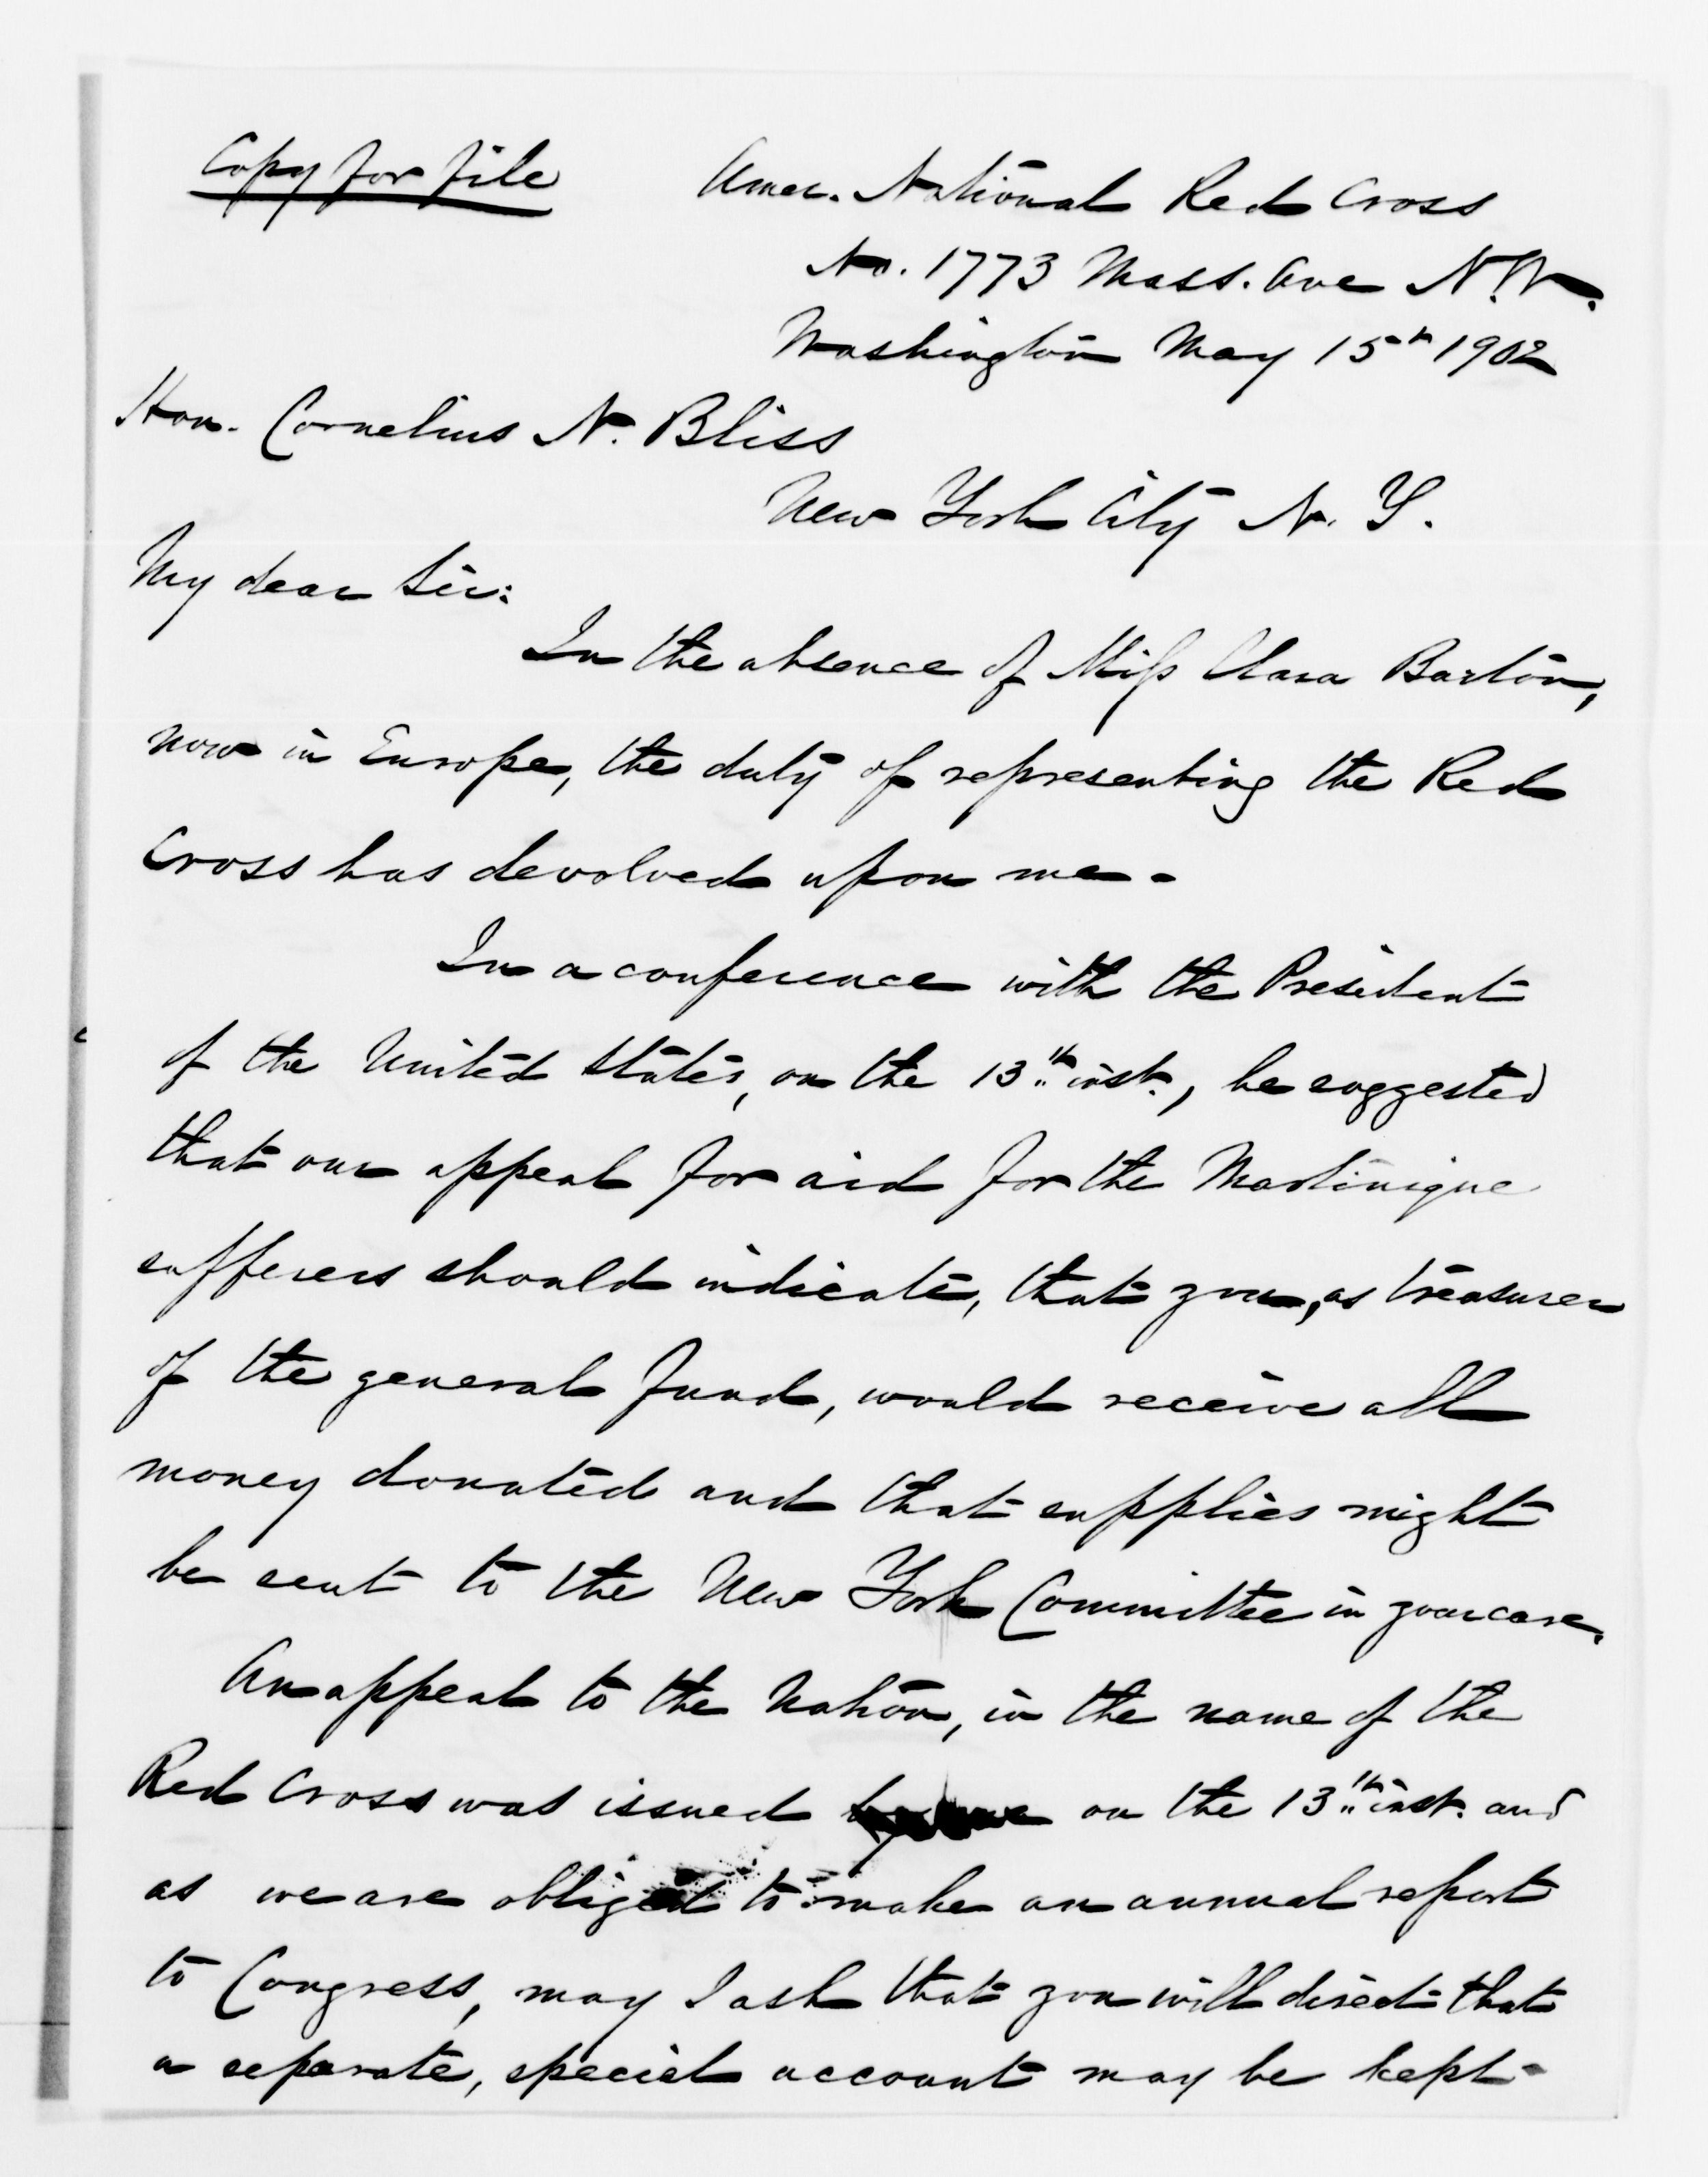 Copy for file
Amer. National Red Cross
No. 1773 Mass. Ave N.W.
Washington May 15th 1902
Hon. Cornelius N. Bliss
New York City N. Y.
My dear Sir:
In the absence of Miss Clara Barton,
now in Europe, the duty of representing the Red
Cross has devolved upon me.
In a conference with the President
of the United States, on the 13th inst., he suggested
that our appeal for aid for the Martinique
sufferers should indicate, that you, as treasurer
of the general fund, would receive all
money donated and that supplies might
be sent to the New York Committee in your care.
An appeal to the Nation, in the name of the
Red Cross was issued on the 13th inst. and
as we are obliged to make an annual report
to Congress, may I ask that you will direct that
a separate, special account may be kept